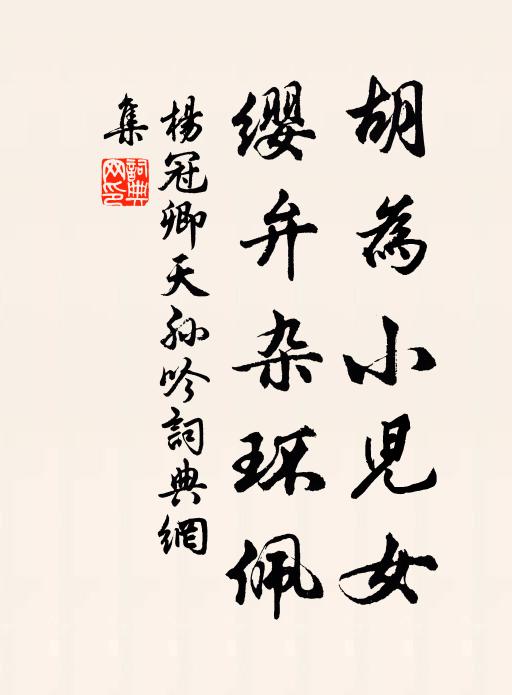 胡為小兒女
缨弁杂环佩
楊冠卿天孙吟詞典網
集
詞典网印